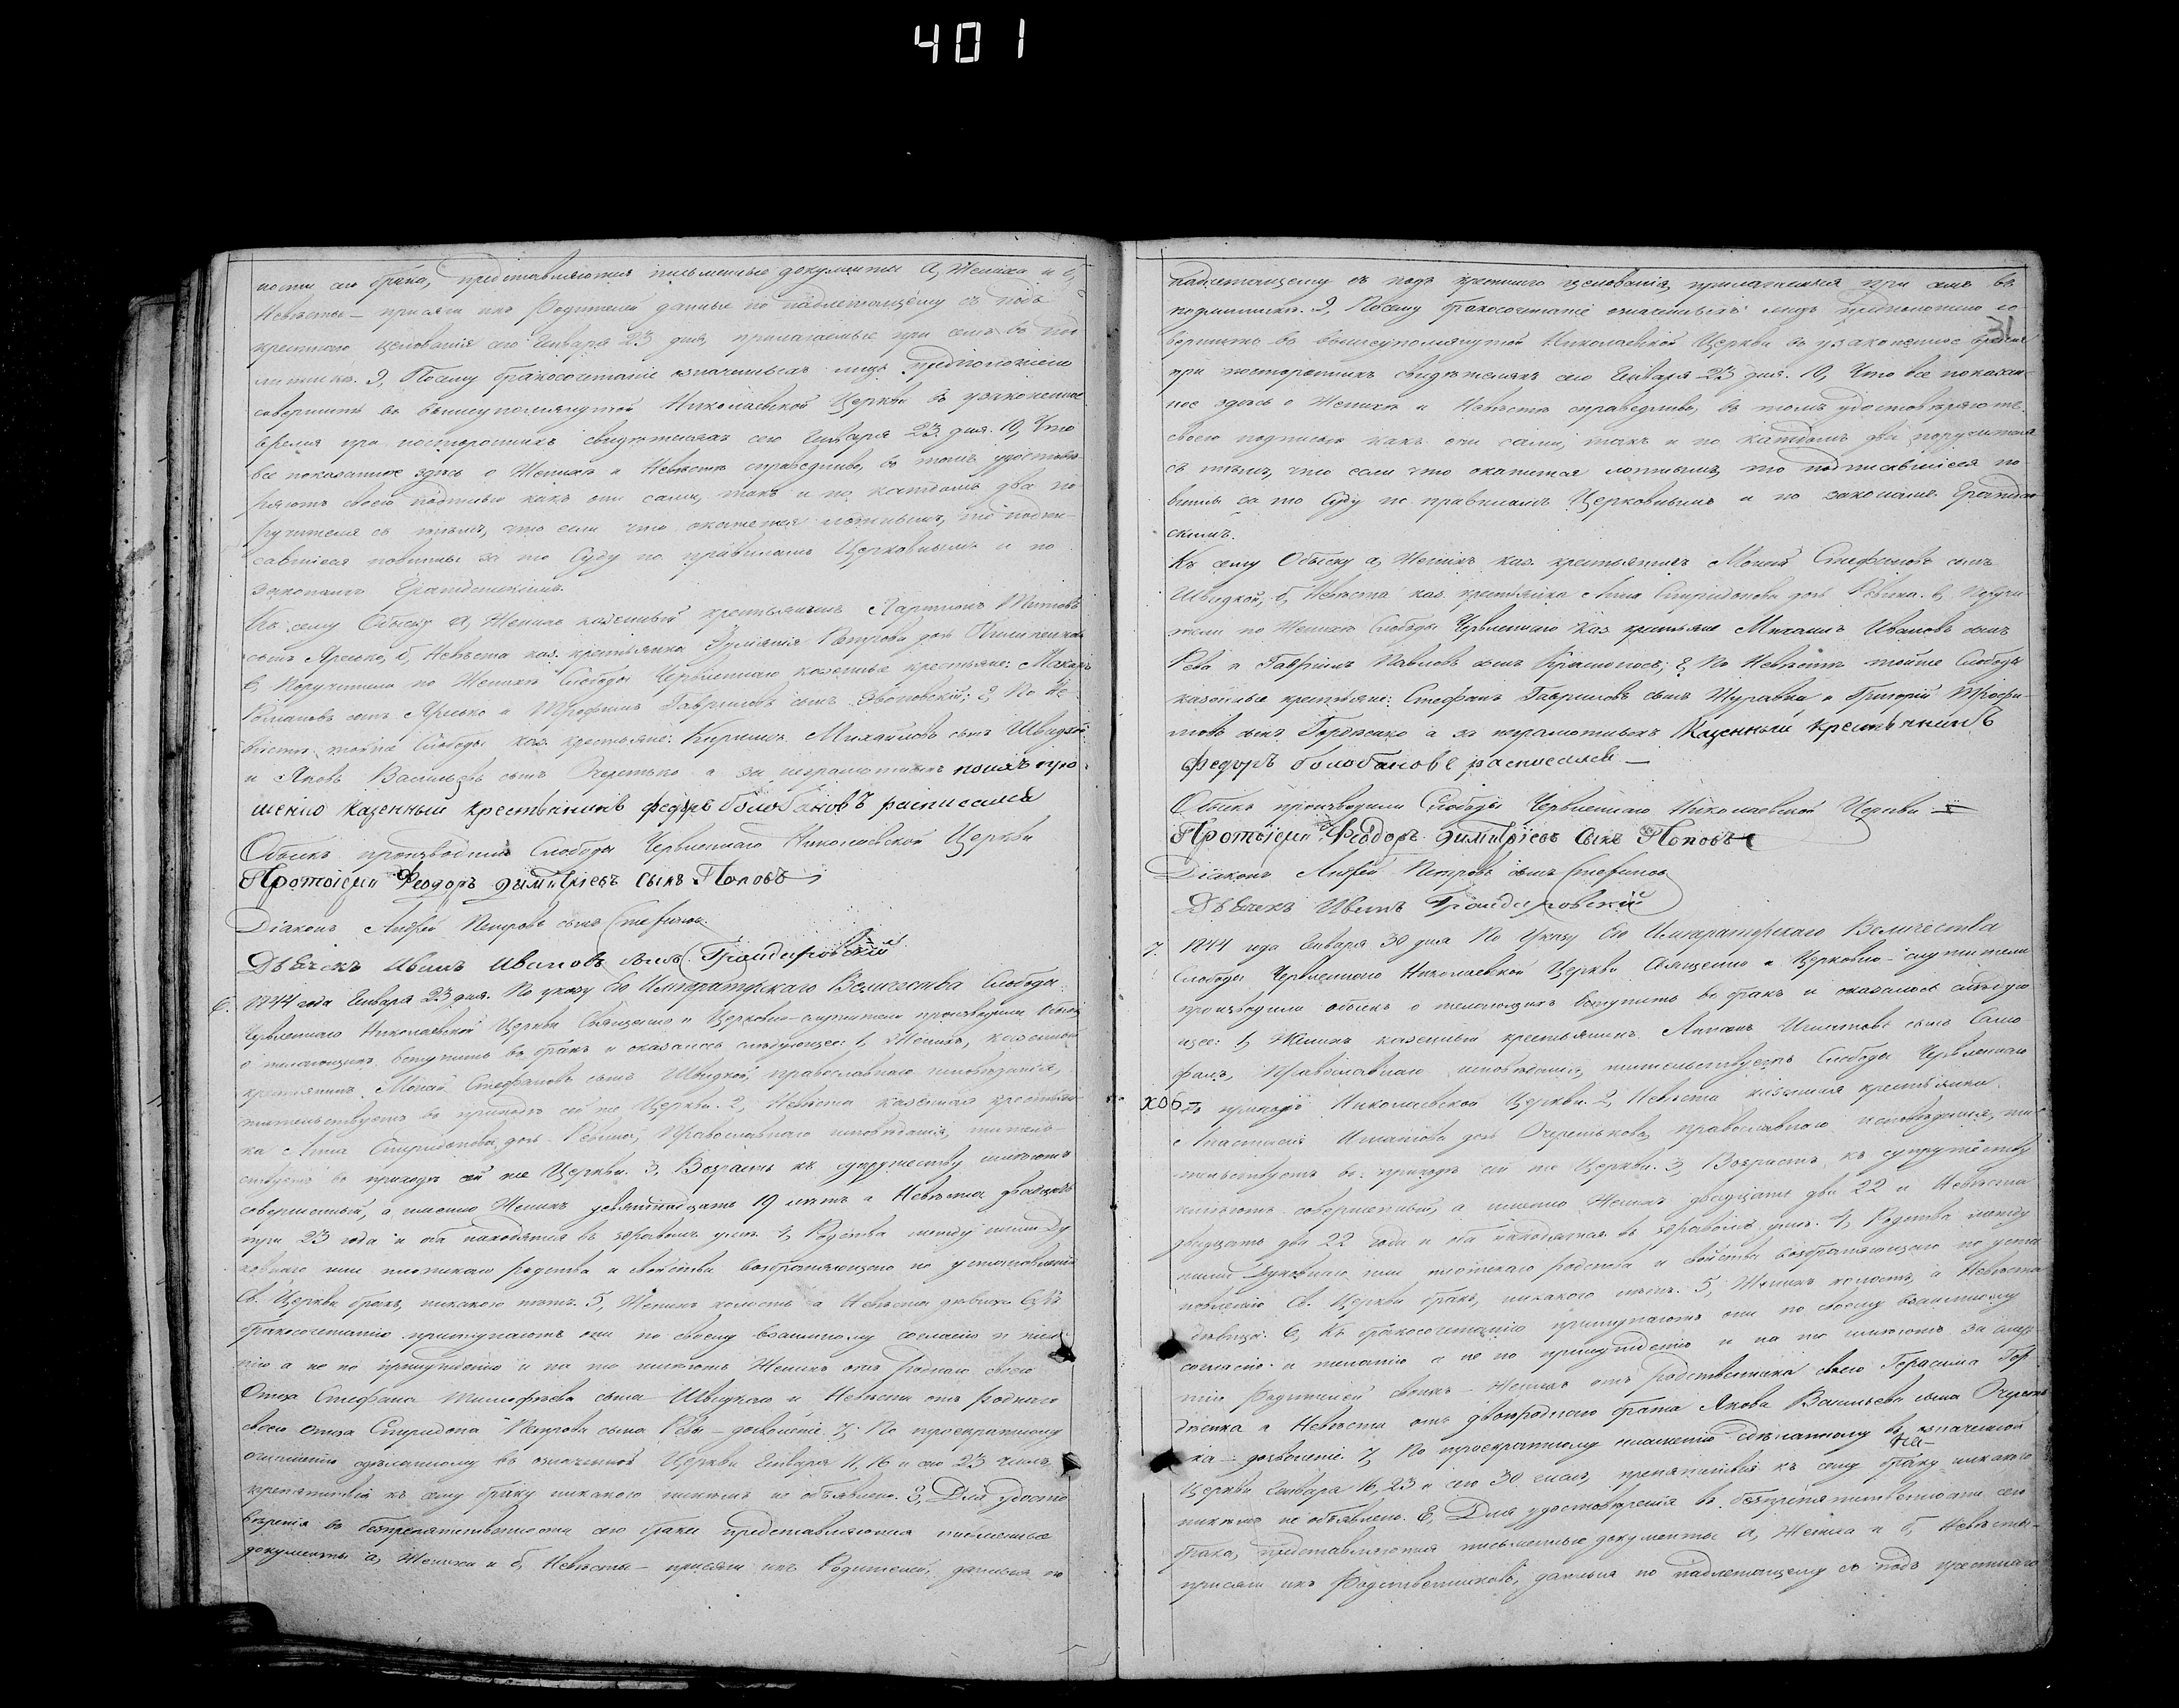 401
ности сего брака, представляются письменные документы а, Жениха и б,
Невѣсты – присяги ихъ Родителей данные по надлежащему съ подъ
крестнаго цѣлованія сего Января 23 дня, прилагаемые при семъ въ под
линникѣ. 9, Посему бракосочетаніе означенныхъ лицъ предположено
совершить въ вышеупомянутой Николаевской Церкви въ узаконенное
время при постороннихъ свидѣтеляхъ сего Января 23 дня. 10, Что
все показанное здѣсь о Женихѣ и Невѣстѣ справедливо, въ томъ удостовѣ-
ряютъ своею подписью какъ они сами, такъ и по каждомъ два по-
ручителя съ тѣмъ, что если что окажется ложнымъ, то подпи-
савшіеся повинны за то Суду по правиламъ Церковнымъ и по
законамъ Гражданскимъ.
Къ сему Обыску а, Женихъ казенный крестьянинъ Ларіонъ
сынъ Яресько, б, Невѣста каз. крестьянка Петрова дочь
в, Поручители по Женихѣ Слободы Червленнаго казенные крестьяне: Макаръ
Романовъ сынъ Яресько и Трофимъ Гавриловъ сынъ г, По Не-
вѣстѣ тойже Слободы каз. крестьяне: Кириллъ Михайловъ сынъ Швидкой
и Яковъ Васильевъ сынъ Очеретько а за неграмотныхъ поихъ про
шенію казенный крестьянинъ федоръ болобановъ расписался
Обыскъ производили Слободы Червленнаго Николаевской Церкви
Протоіерей Феодоръ Димитріевъ сынъ Поповъ
Діаконъ Андрей Петровъ сынъ Стефановъ
Дьячекъ Иванъ Ивановъ сынъ
6. 1844 года Января 23 дня. По указу Его Императорскаго Величества Слободы
Червленнаго Николаевской Церкви Священно и Церковно-служители производили Обыскъ
о желающихъ вступить въ бракъ и оказалось слѣдующее: 1, Женихъ, казенный
крестьянинъ Моисей Стефановъ сынъ Швидкой, православнаго исповѣданія,
жительствуетъ въ приходѣ сей же Церкви. 2, Невѣста казенная крестьян-
ка Анна Спиридонова дочь Ревина, Православнаго исповѣданія, житель-
ствуетъ въ приходѣ сей же Церкви. 3, Возрастъ къ супружеству имѣютъ
совершенный, а именно Женихъ девятнадцать 19 лѣтъ а Невѣста двадцать
три 23 года и оба находятся въ здравомъ умѣ. 4, Родства между ними Ду
ховнаго или плотскаго родства и свойства возбраняющаго по установленію
Св. Церкви бракъ, никакого нѣтъ. 5, Женихъ холостъ а Невѣста дѣвица. 6, Къ
бракосочетанію приступаютъ они по своему взаимному согласію и жела
нію а не по принужденію и на то имѣютъ Женихъ отъ роднаго своего
Отца Стефана Тимофѣева сына Швидкаго и Невѣста отъ роднаго
своего отца Спиридона Петрова сына Ревы – дозволеніе. 7, По троекратному
оглашенію сдѣланному въ означенной Церкви Января 11, 16 и сего 23 чиселъ
препятствія къ сему браку никакого никѣмъ не объявлено. 8, Для удосто
вѣренія въ безпрепятственности сего брака представляются письменные
документы а, Жениха и б, Невѣсты – присяги ихъ Родителей, данныя по
31
надлежащему съ подъ крестнаго цѣлованія, прилагаемыя при семъ въ
подлинникѣ. 9, Посему бракосочетаніе означенныхъ лицъ предположено со
вершить въ вышеупомянутой Николаевской Церкви въ узаконенное время
при постороннихъ свидѣтеляхъ сего Января 23 дня. 10, Что все показан-
ное здѣсь о Женихѣ и Невѣстѣ справедливо, въ томъ удостовѣряютъ
своею подписью какъ они сами, такъ и по каждомъ два поручителя
съ тѣмъ, что если что окажется ложнымъ, то подписавшіеся по
винны за то Суду по правиламъ Церковнымъ и по законамъ Граждан
скимъ.
Къ сему Обыску а, Женихъ каз. крестьянинъ Моисей Стефановъ сынъ
Швидкой, б, Невѣста каз. крестьянка Анна Спиридонова дочь Ревина. в, Поручи-
тели по Женихѣ Слободы Червленнаго каз. крестьяне Михаилъ Ивановъ сынъ
Рева и Гавріилъ Павловъ сынъ г, По Невѣстѣ тойже Слободы
казенные крестьяне: Стефанъ Гавриловъ сынъ Журавка и Григорій Трофи-
мовъ сынъ Гордіенко а за неграмотныхъ Казенный крестьянинъ
Федоръ болобановъ расписался –
Обыскъ производили Слободы Червленнаго Николаевской Церкви –
Протоіерей Феодоръ Димитріевъ Сынъ Поповъ
Діаконъ Андрей Петровъ сынъ Стефановъ
Дьячекъ Иванъ
7. 1844 года Января 30 дня По Указу Его Императорскаго Величества
Слободы Червленнаго Николаевской Церкви Священно и Церковно-служители
производили обыскъ о желающихъ вступить въ бракъ и оказалось слѣдую-
щее: 1, Женихъ казенный крестьянинъ Игнатовъ сынъ
Православнаго исповѣданія, жительствуетъ Слободы Червленнаго
въ приходѣ Николаевской Церкви. 2, Невѣста казенная крестьянка
Анастасія Игнатова дочь Очеретькова, православнаго исповѣданія, жи-
тельствуетъ въ приходѣ сей же Церкви. 3, Возрастъ къ супружеству
имѣютъ совершенный, а именно Женихъ двадцать два 22 и Невѣста
двадцать два 22 года и оба находятся въ здравомъ умѣ. 4, Родства между
ними Духовнаго или плотскаго родства и свойства возбраняющаго по уста
новленію Св. Церкви бракъ, никакого нѣтъ. 5, Женихъ холостъ, а Невѣста
дѣвица. 6, Къ бракосочетанію приступаютъ они по своему взаимному
согласію и желанію а не по принужденію и на то имѣютъ за смер-
тію Родителей своихъ – Женихъ отъ родственника своего Герасима Гор-
діенка а Невѣста отъ двоюроднаго брата Якова Васильева сына Очереть
ка – дозволеніе. 7, По троекратному оглашенію сдѣланному въ означенной
Церкви Января 16, 23 и сего 30 чиселъ, препятствія къ сему браку никакого
никѣмъ не объявлено. 8, Для удостовѣренія въ безпрепятственности сего
брака, представляются письменные документы а, Жениха и б, Невѣсты –
присяги ихъ Родственниковъ, данныя по надлежащему съ подъ крестнаго